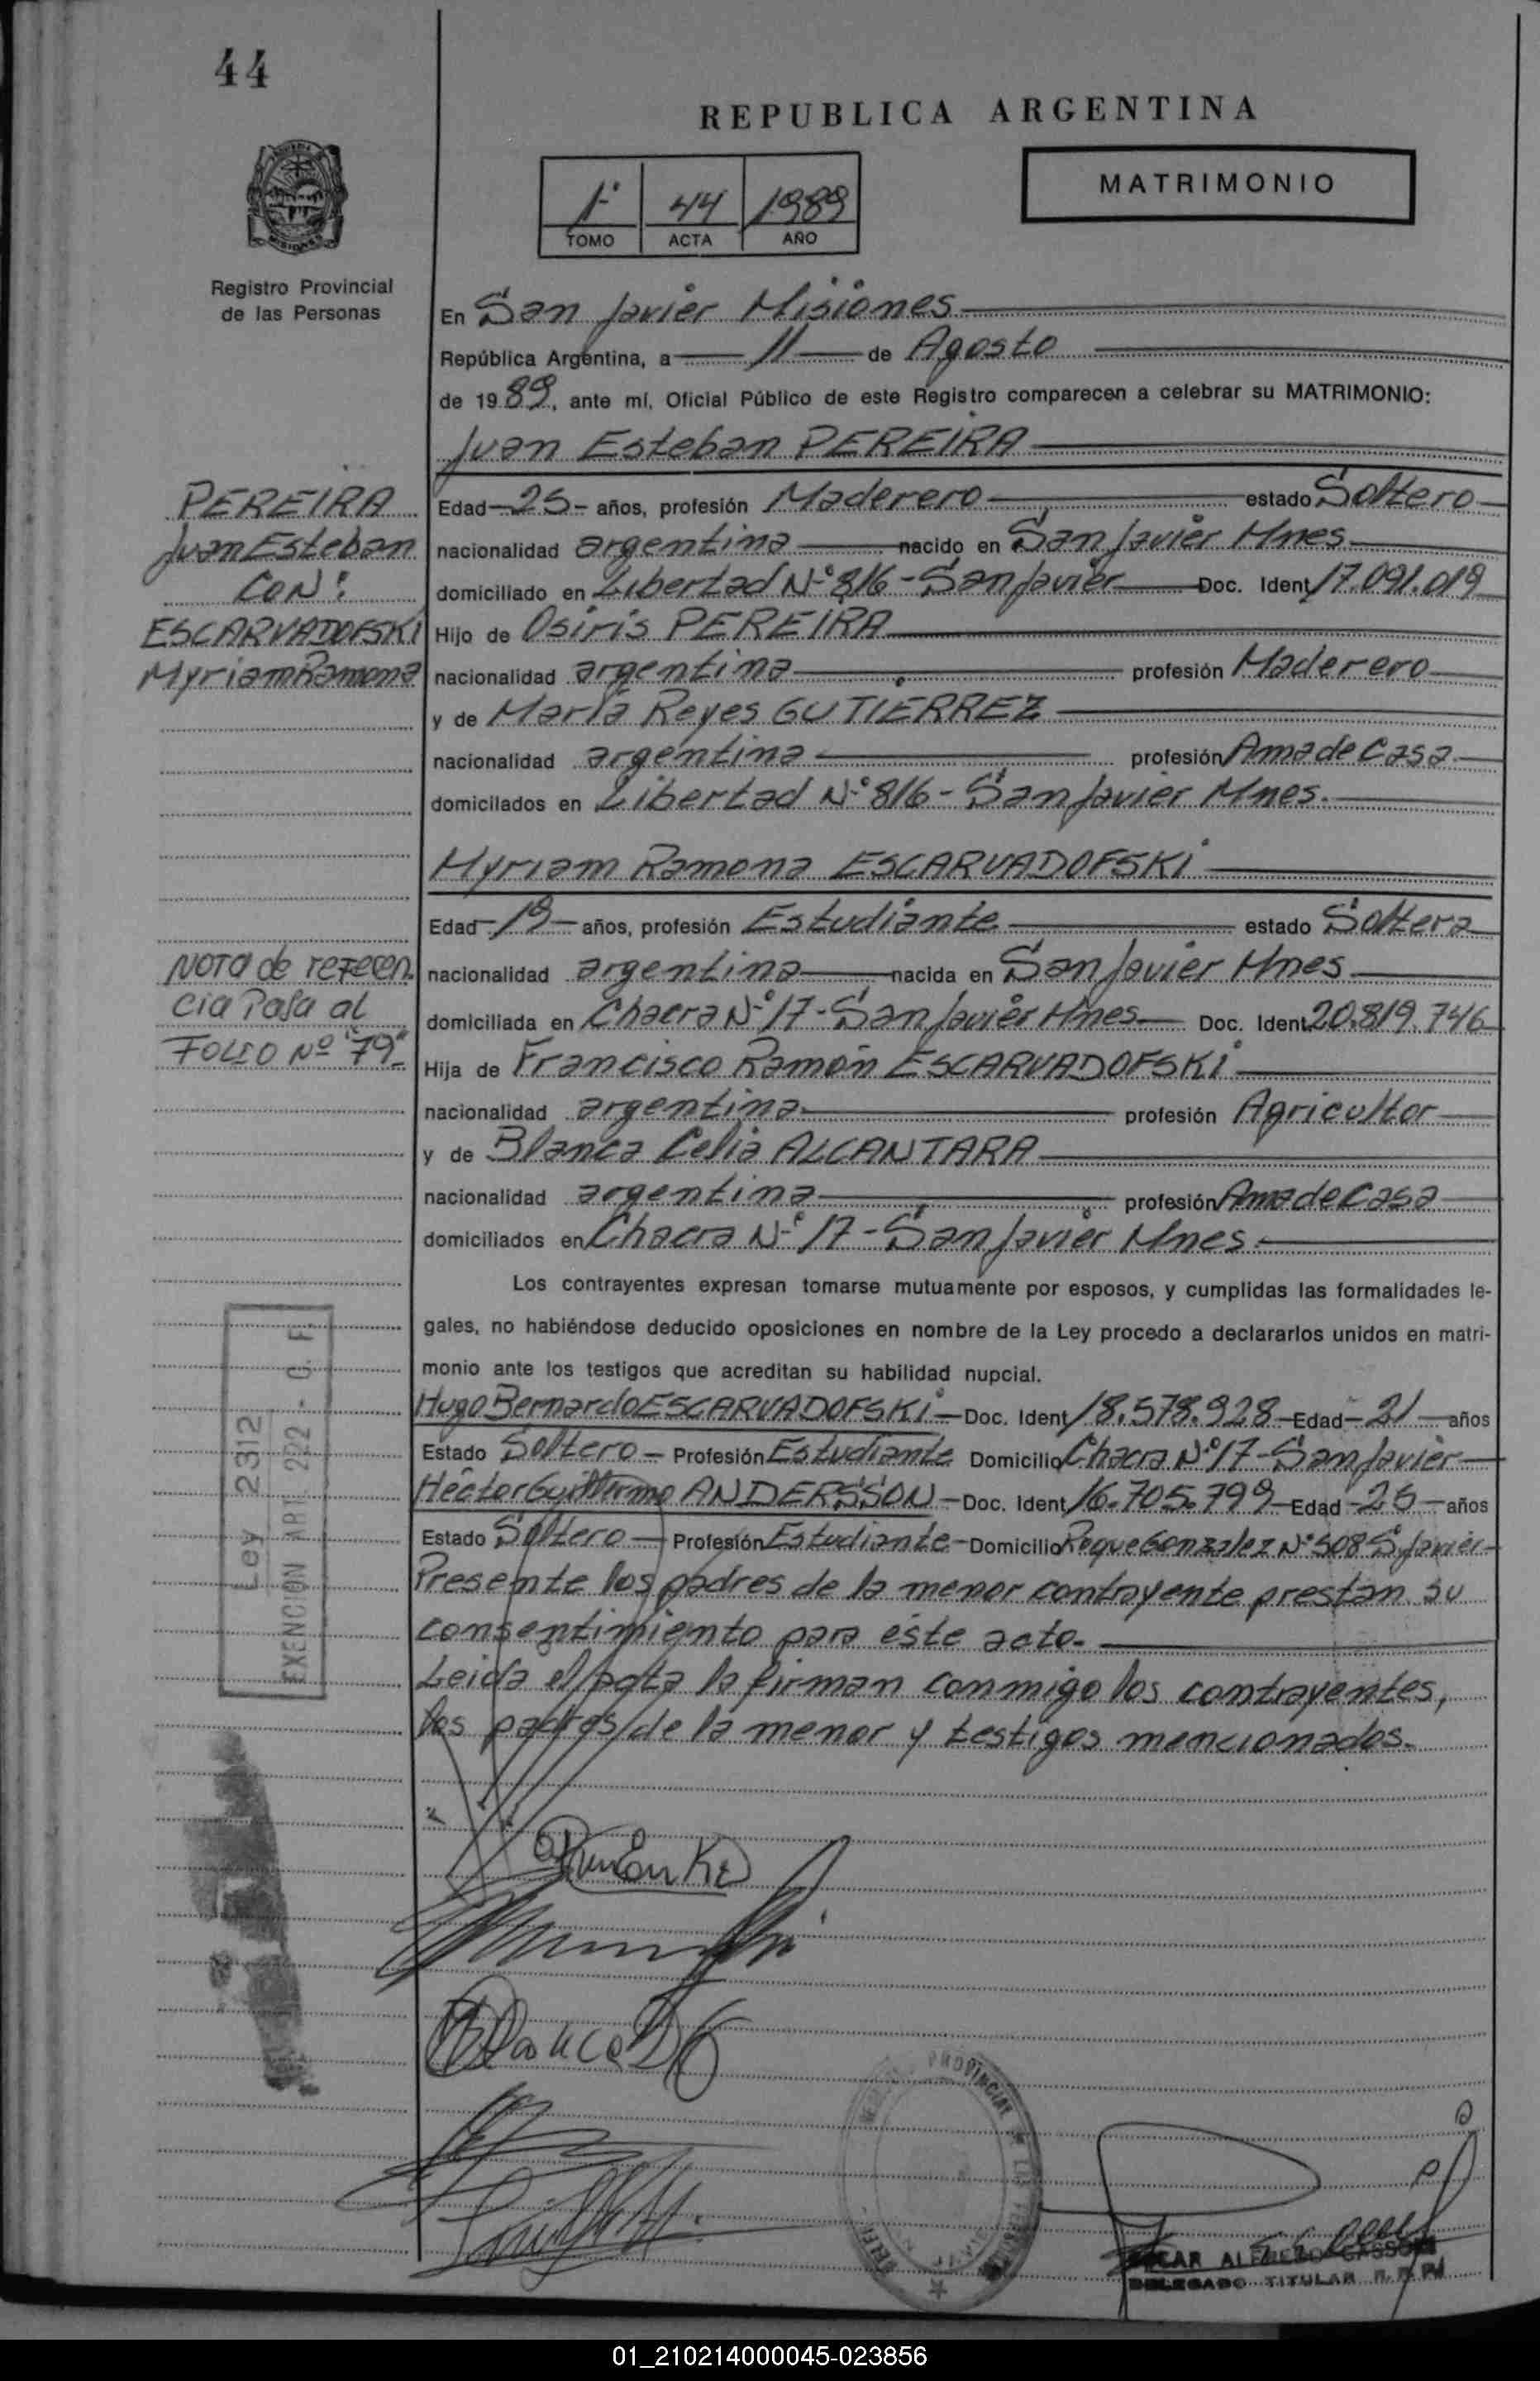 44
REPUBLICA ARGENTINA
MATRIMONIO
1º 44 1989
TOMO ACTA AÑO
Registro Provincial
de las Personas
En San Javier Misiones
República Argentina, a 11 de Agosto
de 1989, ante mí, Oficial Público de este Registro comparecen a celebrar su MATRIMONIO:
Juan Esteban PEREIRA
PEREIRA
Juan Esteban
CON:
ESCARVADOFSKI
Myriam Ramona
Edad 25 años, profesión Maderero estado Soltero
nacionalidad argentina nacido en San Javier Mnes
domiciliado en Libertad Nº 816 - San Javier Doc. Ident 17.091.019
Hijo de Osiris PEREIRA
nacionalidad argentina profesión Maderero
y de María Reyes GUTIERREZ
nacionalidad argentina profesión Ama de Casa
domicilados en Libertad Nº 816 - San Javier Mnes.
Myriam Ramona ESCARVADOFSKI
Edad 19 años, profesión Estudiante estado Soltera
nacionalidad argentina nacida en San Javier Mnes
domiciliada en Chacra Nº 17 - San Javier Mnes Doc. Ident 20.819.746
Hija de Francisco Ramón ESCARVADOFSKI
nacionalidad argentina profesión Agricultor
y de Blanca Celia ALCANTARA
nacionalidad argentina profesión Ama de Casa
domiciliados en Chacra Nº 17 - San Javier Mnes.
Nota de referen
cia Pasa al
Folio Nº "79"
Los contrayentes expresan tomarse mutuamente por esposos, y cumplidas las formalidades le-
gales, no habiéndose deducido oposiciones en nombre de la Ley procedo a declararlos unidos en matri-
monio ante los testigos que acreditan su habilidad nupcial.
Hugo Bernardo ESCARVADOFSKI - Doc. Ident 18.578.928 Edad 21 años
Estado Soltero - Profesión Estudiante Domicilio Chacra Nº 17 - San Javier
Héctor Guillermo ANDERSSON - Doc. Ident 16.705.799 Edad 25 años
Estado Soltero - Profesión Estudiante - Domicilio Roque Gonzalez Nº 508 S. Javier
Presente los padres de la menor contrayente prestan su
consentimiento para éste acto.
Leida el acta la firman conmigo los contrayentes,
los padres de la menor y testigos mencionados.
Ley 2312
EXENCION ART. 222 - C. F.
Blanca
PROVINCIAL
ALFREDO
DELEGADO TITULAR R. P. P.
01_210214000045-023856